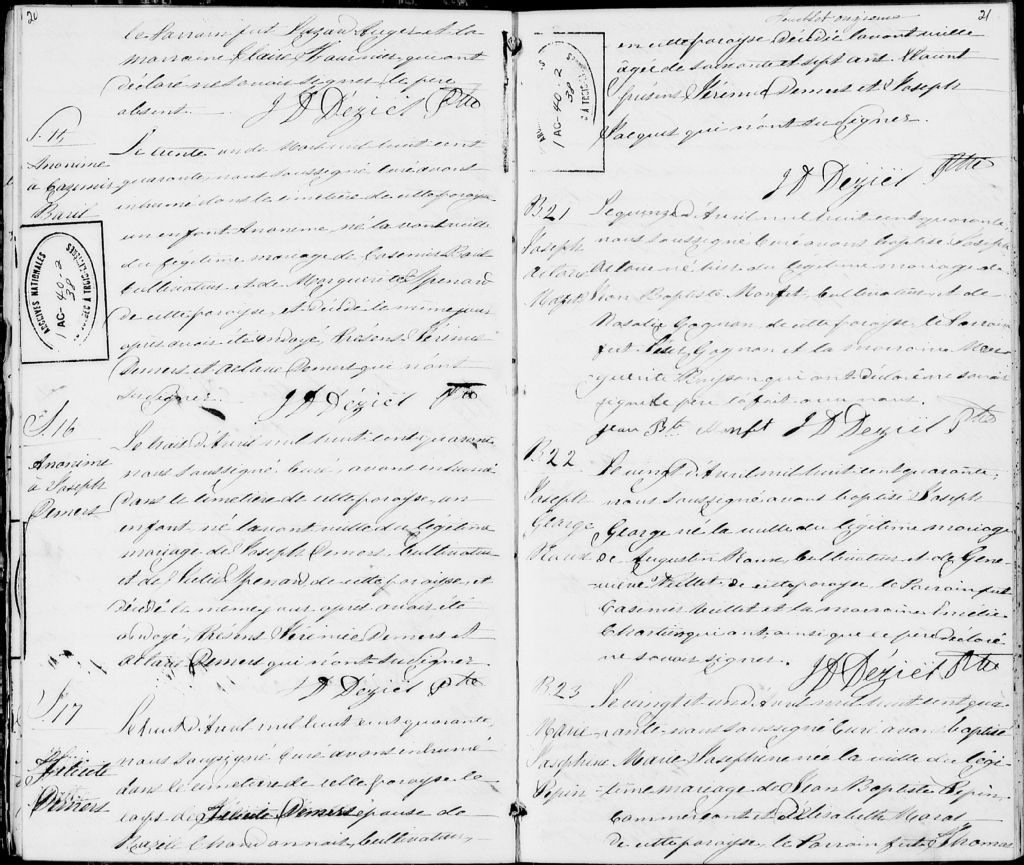 20
le Parrain fut Lazare Auger et la
marraine Claire qui ont
déclaré ne savoir signer, le père
absent.
J D Déziel Ptre
S. 15
Anonime
à Casemir
Baril
Le trente un de Mars mil huit cent
quarante, nous soussigné Curé avons
inhumé dans le cimetière de cette paroisse
un enfant Anonime, né la avant veille
du légitime mariage de Casemir Baril
Cultivateur et de Marguerite Spenard
de cette paroisse, et décédé le même jour
après avoir été ondoyé. Présens Jérémie
Demers et Actave Demers qui n'ont
su signer.
J D Déziel Ptre
ARCHIVES NATIONALES
1 AC-40-2
38
QUÉBEC À TROIS-RIVIÈRES
S. 16
Anonime
à Joseph
Demers
Le trois d'Avril mil huit cent quarante,
nous soussigné Curé, avons inhumé
dans le cimetière de cette paroisse, un
enfant né l'avant veille du légitime
mariage de Joseph Demers Cultivateur
et de Julie Spenard de cette paroisse, et
décédé le même jour après avoir été
ondoyé, Présens Jérémie Demers et
Actave Demers qui n'ont su signer
J D Déziel Ptre
S. 17
Félicité
Demers
Le huit d'Avril mil huit cent quarante,
nous soussigné Curé avons inhumé
dans le cimetière de cette paroisse le
corps de Félicité Demers épouse de
Chandonnait, Cultivateur,
Feuillet onzième
21
en cette paroisse, décédée l'avant veille
âgée de soixante et sept ans. Etaient
présens Jérémie Demers et Joseph
Jacques qui n'ont su signer.
J D Déziel Ptre
1 AC-40-2
38
C À TROIS-RIV
B 21
Joseph
Actave
Le quinze d'Avril mil huit cent quarante,
nous soussigné Curé avons baptisé Joseph
Actave né hier du légitime mariage de
Jean Baptiste Monfet, Cultivateur et de
Rosalie Gagnon de cette paroisse, le Parrain
fut Gagnon et la marraine Mar-
guerite qui ont déclaré ne savoir
signer le père l'a fait avec nous.
jean Bte Monfet J D Déziel Ptre
B 22
Joseph
George
Roux
Le vingt d'Avril mil huit cent quarante,
nous soussigné avons baptisé Joseph
George né la veille du légitime mariage
de Augustin Roux, Cultivateur et de Gene-
viève de cette paroisse, le Parrain fut
Casemir et la marraine Emélie
qui ont, ainsi que le père déclaré
ne savoir signer.
J D Déziel Ptre
B 23
Marie
Josephine
Pepin
Le vingt et un d'Avril mil huit cent qua-
rante nous soussigné Curé avons baptisé
Marie Josephine née la veille du légi-
time mariage de Jean Baptiste Pepin,
Commerçant et d'Elisabeth
de cette paroisse, le Parrain fut Thomas